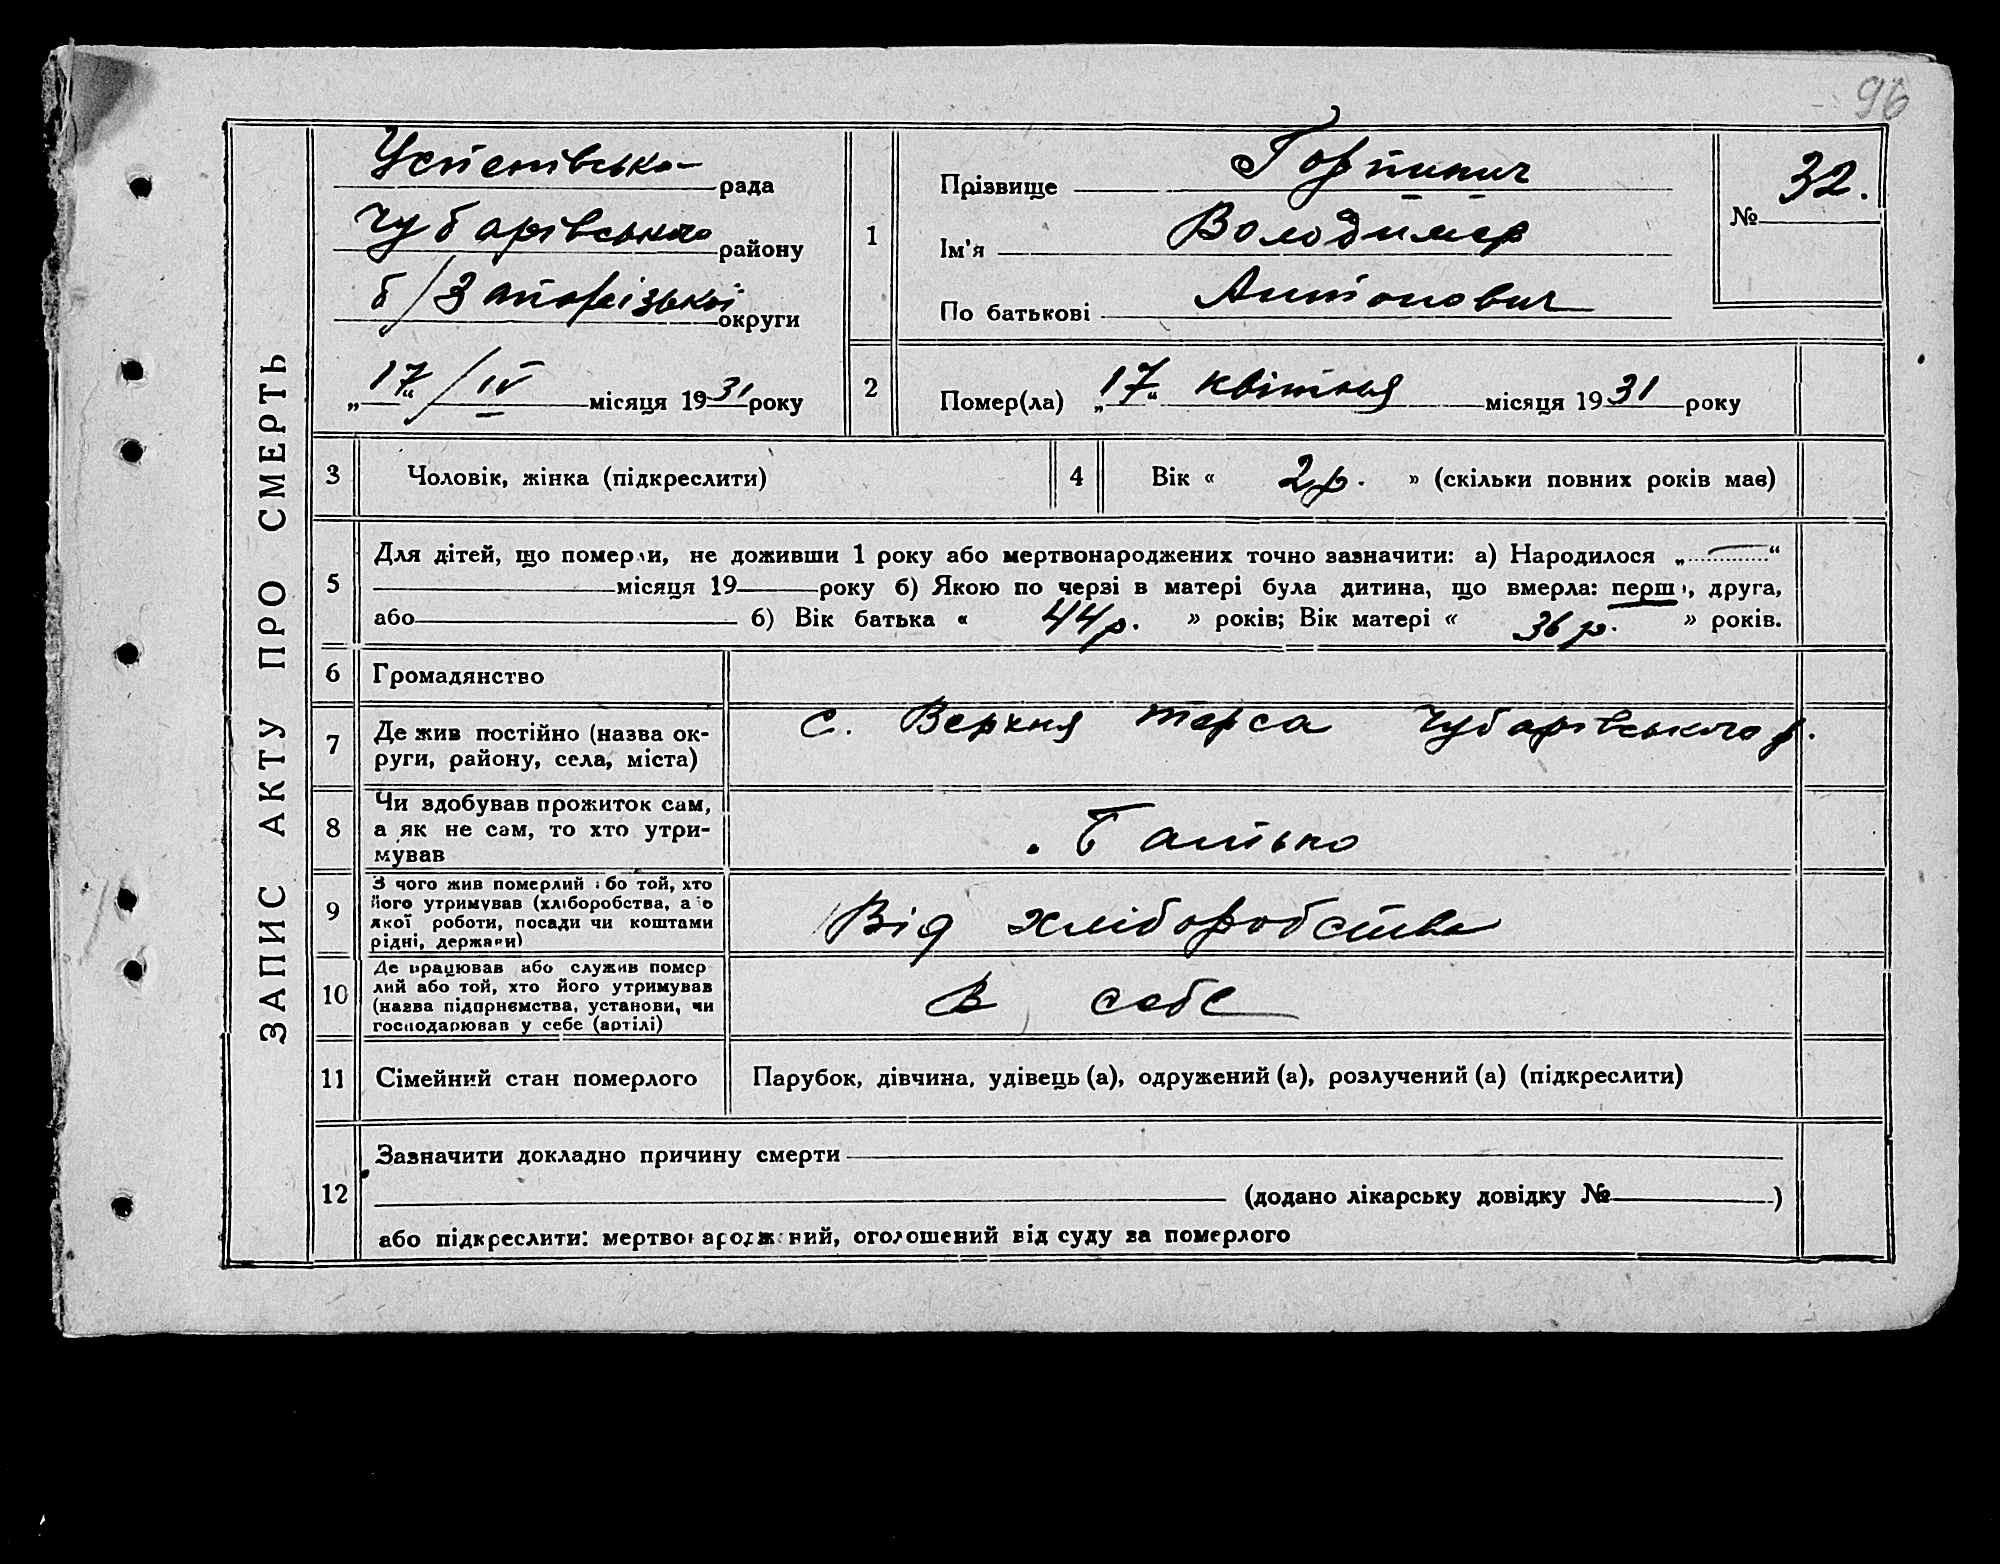 96
ЗАПИС АКТУ ПРО СМЕРТЬ
Успенівська рада
Чубарівського району
б/Запорізької округи
„17“/IV місяця 1931 року
1
Прізвище Горпинич
Ім'я Володимер
По батькові Антонович
№ 32.
2
Помер(ла) „17“ квітня місяця 1931 року
3 Чоловік, жінка (підкреслити)
4 Вік « 2 р. » (скільки повних років має)
5
Для дітей, що померли, не доживши 1 року або мертвонароджених точно зазначити: а) Народилося „ — “
місяця 19 року б) Якою по черзі в матері була дитина, що вмерла: перша, друга,
або б) Вік батька « 44 р. » років; Вік матері « 36 р. » років.
6 Громадянство
7
Де жив постійно (назва ок-
руги, району, села, міста)
с. Верхня Терса Чубарівського р.
8
Чи здобував прожиток сам,
а як не сам, то хто утри-
мував
Батько
9
З чого жив померлий або той, хто
його утримував (хліборобства, або
якої роботи, посади чи коштами
рідні, держави)
Від хліборобства
10
Де працював або служив помер
лий або той, хто його утримував
(назва підприємства, установи, чи
господарював у себе (артілі)
В себе
11 Сімейний стан померлого
Парубок, дівчина, удівець (а), одружений (а), розлучений (а) (підкреслити)
12
Зазначити докладно причину смерти
(додано лікарську довідку № )
або підкреслити: мертвонароджений, оголошений від суду за померлого